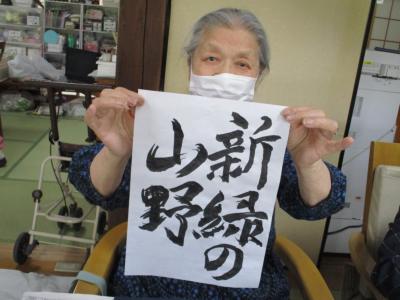 新緑の
山野